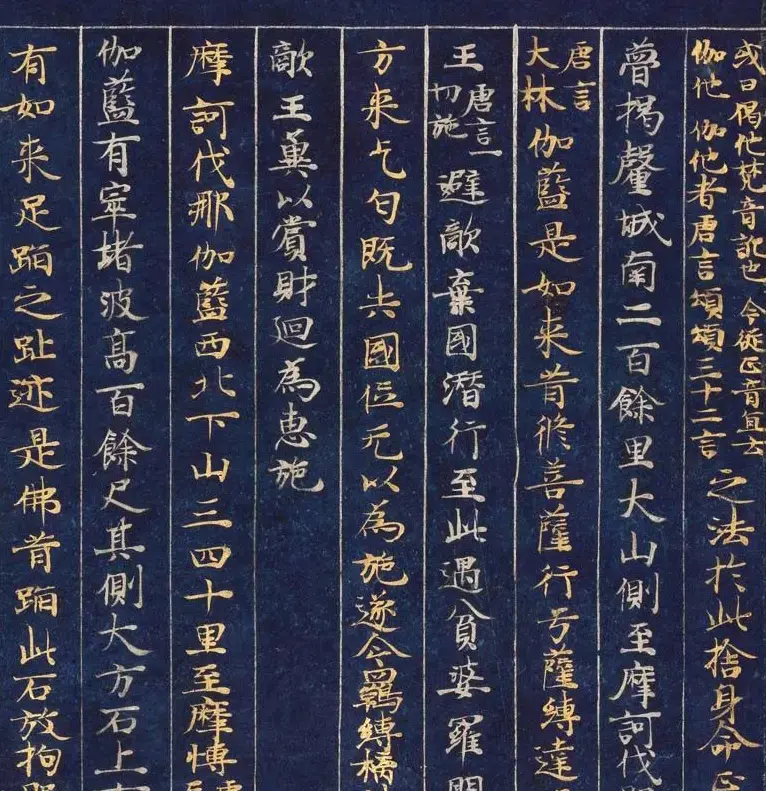 或曰偈他梵音訛也今從正音宜云伽他伽他者唐言頌頌三十二言之法於此捨身命正
瞢揭釐城南二百餘里大山側至摩訶伐
唐言大林伽藍是如来昔修菩薩行号薩縛達
王唐言一切施避敵棄國潛行至此遇貧婆羅門
方来乞匂既失國位无以為施遂令羈縛擒
敵王冀以賞財迴為惠施
摩訶伐那伽藍西北下山三四十里至摩愉
伽藍有窣堵波高百餘尺其側大方石上
有如来足蹈之趾迹是佛昔蹈此石放拘